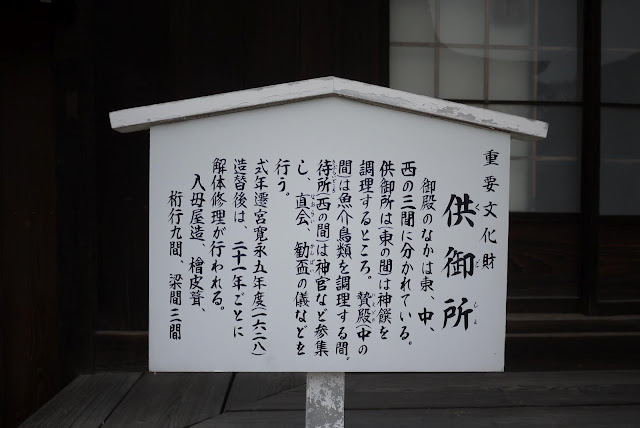 重要文化財
供御所
くごしょ
御殿のなかは東、中、
西の三間に分かれている。
供御所は(東の間)は神饌を
調理するところ。贄殿(中の
間)は魚介鳥類を調理する間。
待所(西の間)は神官など参集
し、直会、勧盃の儀などを
行う。
式年遷宮寛永五年度(一六二八)
造替後は、二十一年ごとに
解体修理が行われる。
入母屋造、檜皮葺、
桁行九間、梁間三間